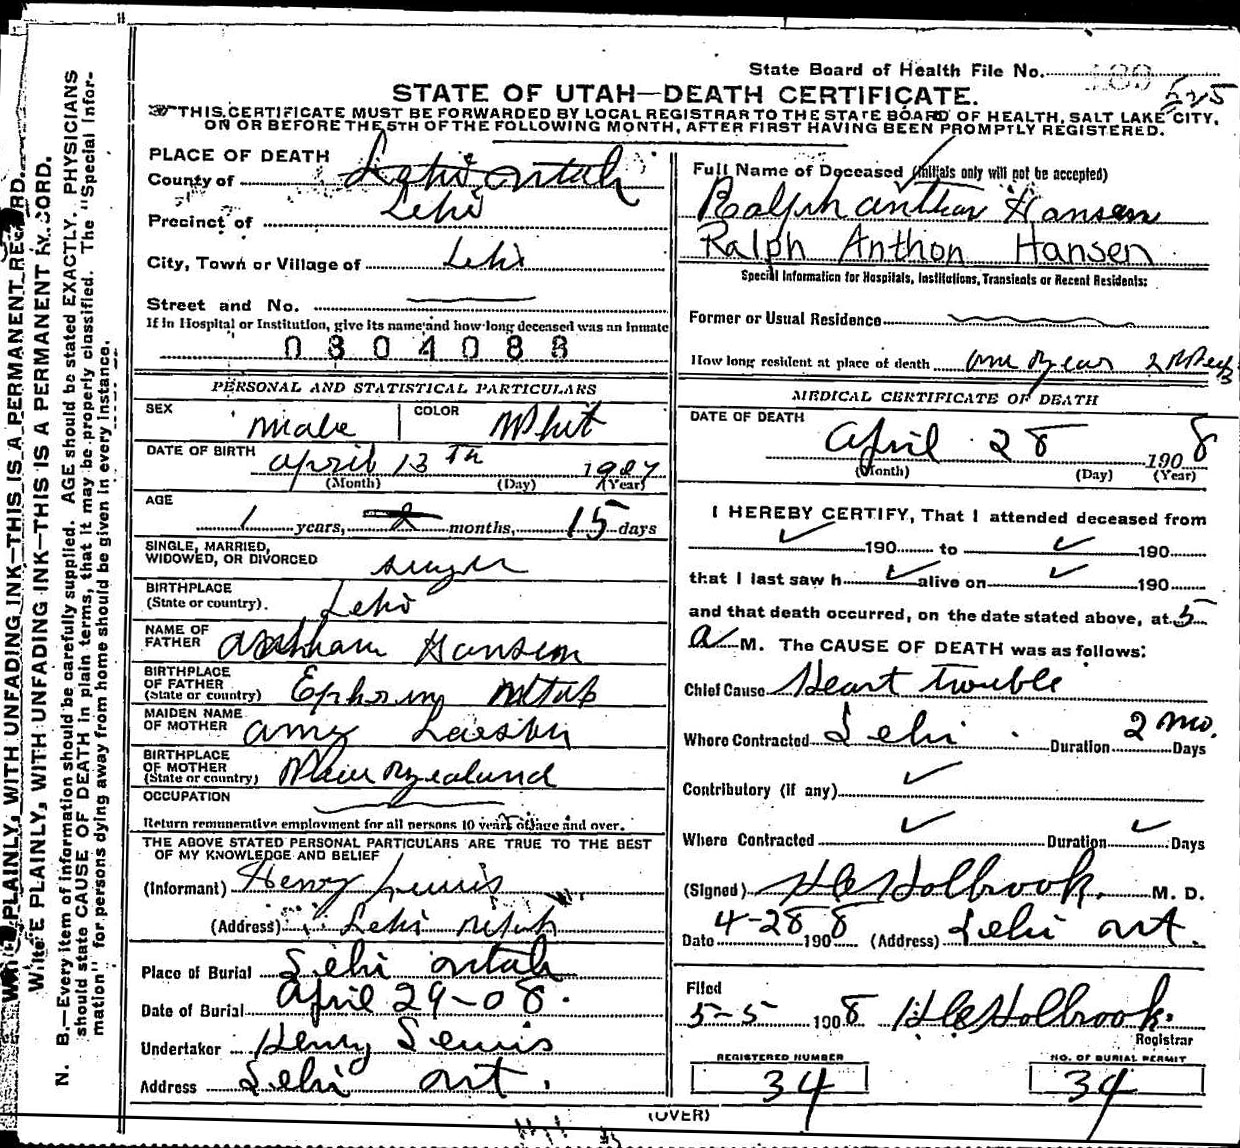 State Board of Health File No. 180 525
STATE OF UTAH—DEATH CERTIFICATE.
THIS CERTIFICATE MUST BE FORWARDED BY LOCAL REGISTRAR TO THE STATE BOARD OF HEALTH, SALT LAKE CITY,
ON OR BEFORE THE 5TH OF THE FOLLOWING MONTH, AFTER FIRST HAVING BEEN PROMPTLY REGISTERED.
PLACE OF DEATH
County of Lehi Utah
Precinct of Lehi
City, Town or Village of Lehi
Street and No.
If in Hospital or Institution, give its name and how long deceased was an inmate
0304088
PERSONAL AND STATISTICAL PARTICULARS
SEX Male COLOR Whit
DATE OF BIRTH April 13th 1907
(Month) (Day) (Year)
AGE 1 years, 2 months, 15 days
SINGLE, MARRIED,
WIDOWED, OR DIVORCED single
BIRTHPLACE
(State or country). Lehi
NAME OF
FATHER Hansen
BIRTHPLACE
OF FATHER
(State or country) Ephraim Utah
MAIDEN NAME
OF MOTHER Amy Larson
BIRTHPLACE
OF MOTHER
(State or country) New Zealand
OCCUPATION
Return remunerative employment for all persons 10 years of age and over.
THE ABOVE STATED PERSONAL PARTICULARS ARE TRUE TO THE BEST
OF MY KNOWLEDGE AND BELIEF
(Informant) Henry Lewis
(Address) Lehi Utah
Place of Burial Lehi Utah
Date of Burial April 29-08.
Undertaker Henry Lewis
Address Lehi Ut.
Full Name of Deceased (Initials only will not be accepted)
Ralph Anthon Hansen
Ralph Anthon Hansen
Special Information for Hospitals, Institutions, Transients or Recent Residents:
Former or Usual Residence
How long resident at place of death one year
MEDICAL CERTIFICATE OF DEATH
DATE OF DEATH
April 28 1908
(Month) (Day) (Year)
I HEREBY CERTIFY, That I attended deceased from
190 to 190
that I last saw h alive on 190
and that death occurred, on the date stated above, at 5
a M. The CAUSE OF DEATH was as follows:
Chief Cause Heart trouble
Where Contracted Lehi Duration 2 mo. Days
Contributory (if any)
Where Contracted Duration Days
(Signed) Holbrook. M. D.
Date 4-28 1908 (Address) Lehi Ut.
Filed
5-5 1908 Holbrook.
Registrar
REGISTERED NUMBER
34
NO. OF BURIAL PERMIT
34
(OVER)
WRITE PLAINLY, WITH UNFADING INK—THIS IS A PERMANENT RECORD.
WRITE PLAINLY, WITH UNFADING INK—THIS IS A PERMANENT RECORD.
N. B.—Every item of information should be carefully supplied. AGE should be stated EXACTLY. PHYSICIANS
should state CAUSE OF DEATH in plain terms, that it may be properly classified. The "Special Infor-
mation" for persons dying away from home should be given in every instance.